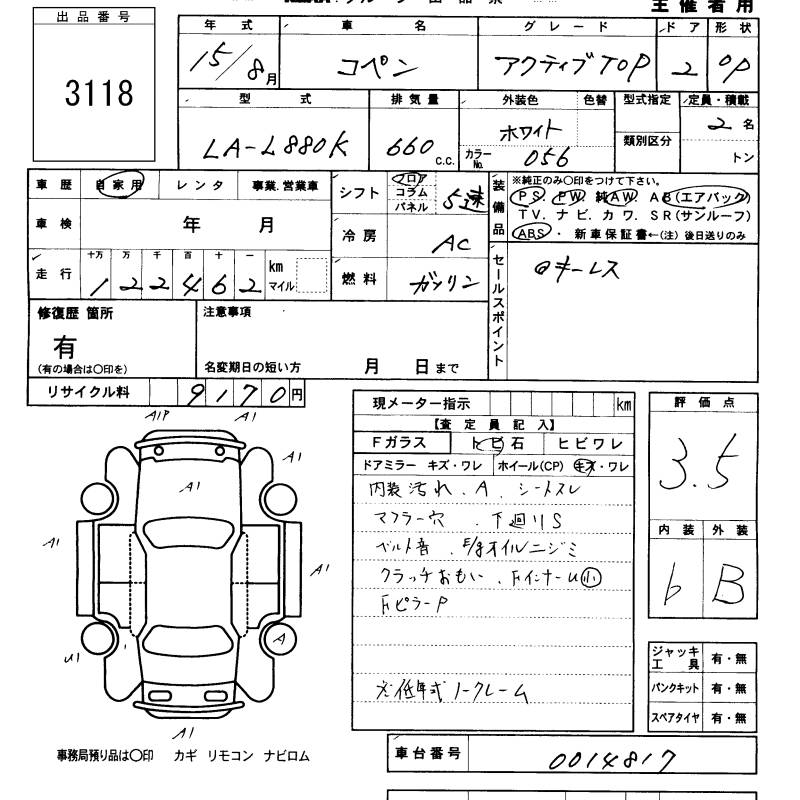 主催者用
出品番号
3118
年式 車名 グレード ドア 形状
15/8月 コペン アクティブTOP 2 OP
型式 排気量 外装色 色替 型式指定 定員・積載
LA-L880K 660 c.c. ホワイト カラーNo. 056 類別区分 2名 トン
車歴 自家用 レンタ 事業.営業車
車検 年 月
走行 十万 万 千 百 十 一 km マイル
1 2 2 4 6 2
シフト フロア コラム パネル 5速
冷房 AC
燃料 ガソリン
装備品
※純正のみ○印をつけて下さい。
PS. PW. 純AW. AB(エアバック)
TV. ナビ. カワ. SR(サンルーフ)
ABS ・ 新車保証書←(注) 後日送りのみ
セールスポイント
キーレス
修復歴 箇所
有
(有の場合は○印を)
注意事項
名変期日の短い方 月 日まで
リサイクル料 9170円
A1P A1
A1
A1
A1
A1
U1
A
A1
事務局預り品は○印 カギ リモコン ナビロム
現メーター指示 km
【査定員記入】
Fガラス トビ石 ヒビワレ
ドアミラー キズ・ワレ ホイール(CP) キズ・ワレ
内装汚れ . A . シートスレ
マフラー穴 . 下廻りS
ベルト音 . E/gオイルニジミ
クラッチおもい . FインナーU小
FピラーP
低年式ノークレーム
評価点
3.5
内装 外装
b B
ジャッキ工具 有・無
パンクキット 有・無
スペアタイヤ 有・無
車台番号 0014817